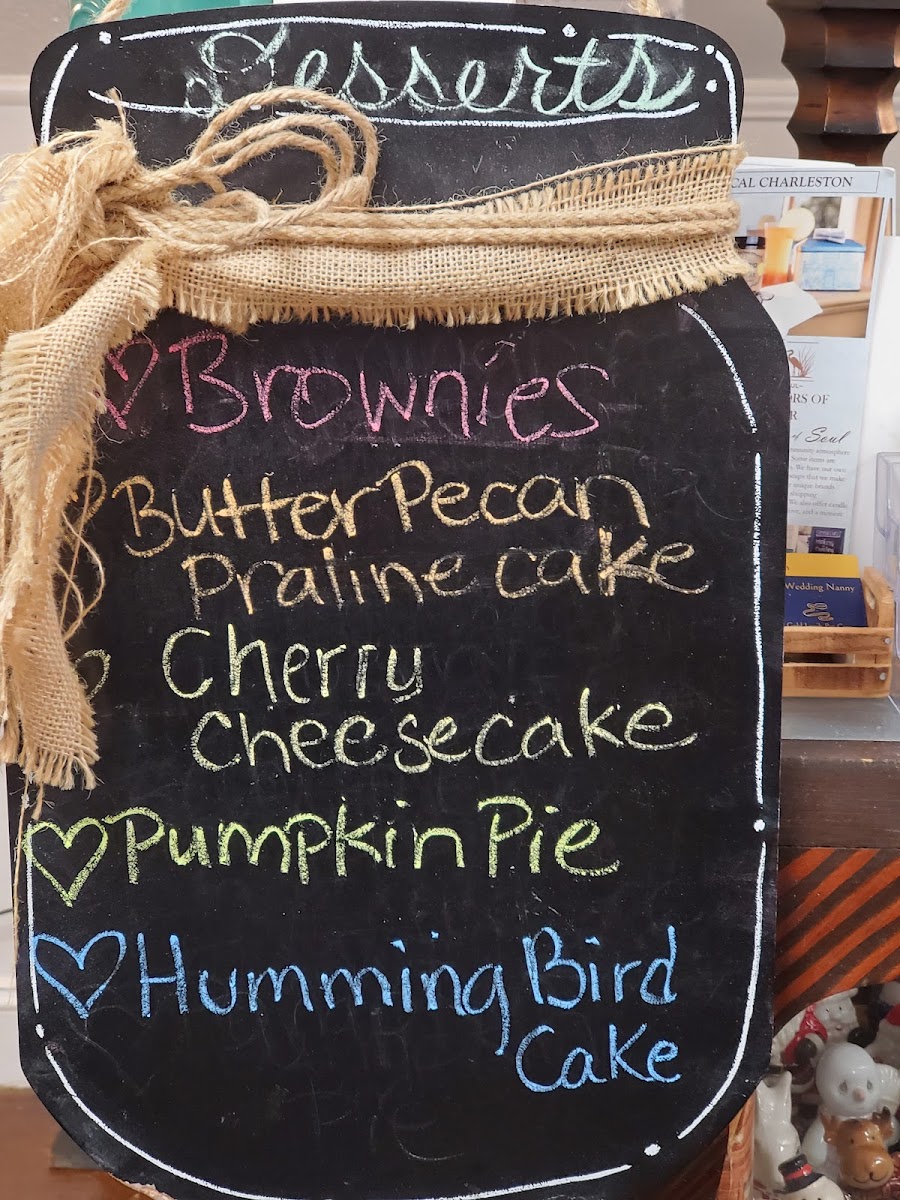 Desserts
Brownies
Butter Pecan
Praline cake
Cherry
Cheesecake
Pumpkin Pie
Humming Bird
Cake
CAL CHARLESTON
ORS OF
of Soul
Wedding Nanny